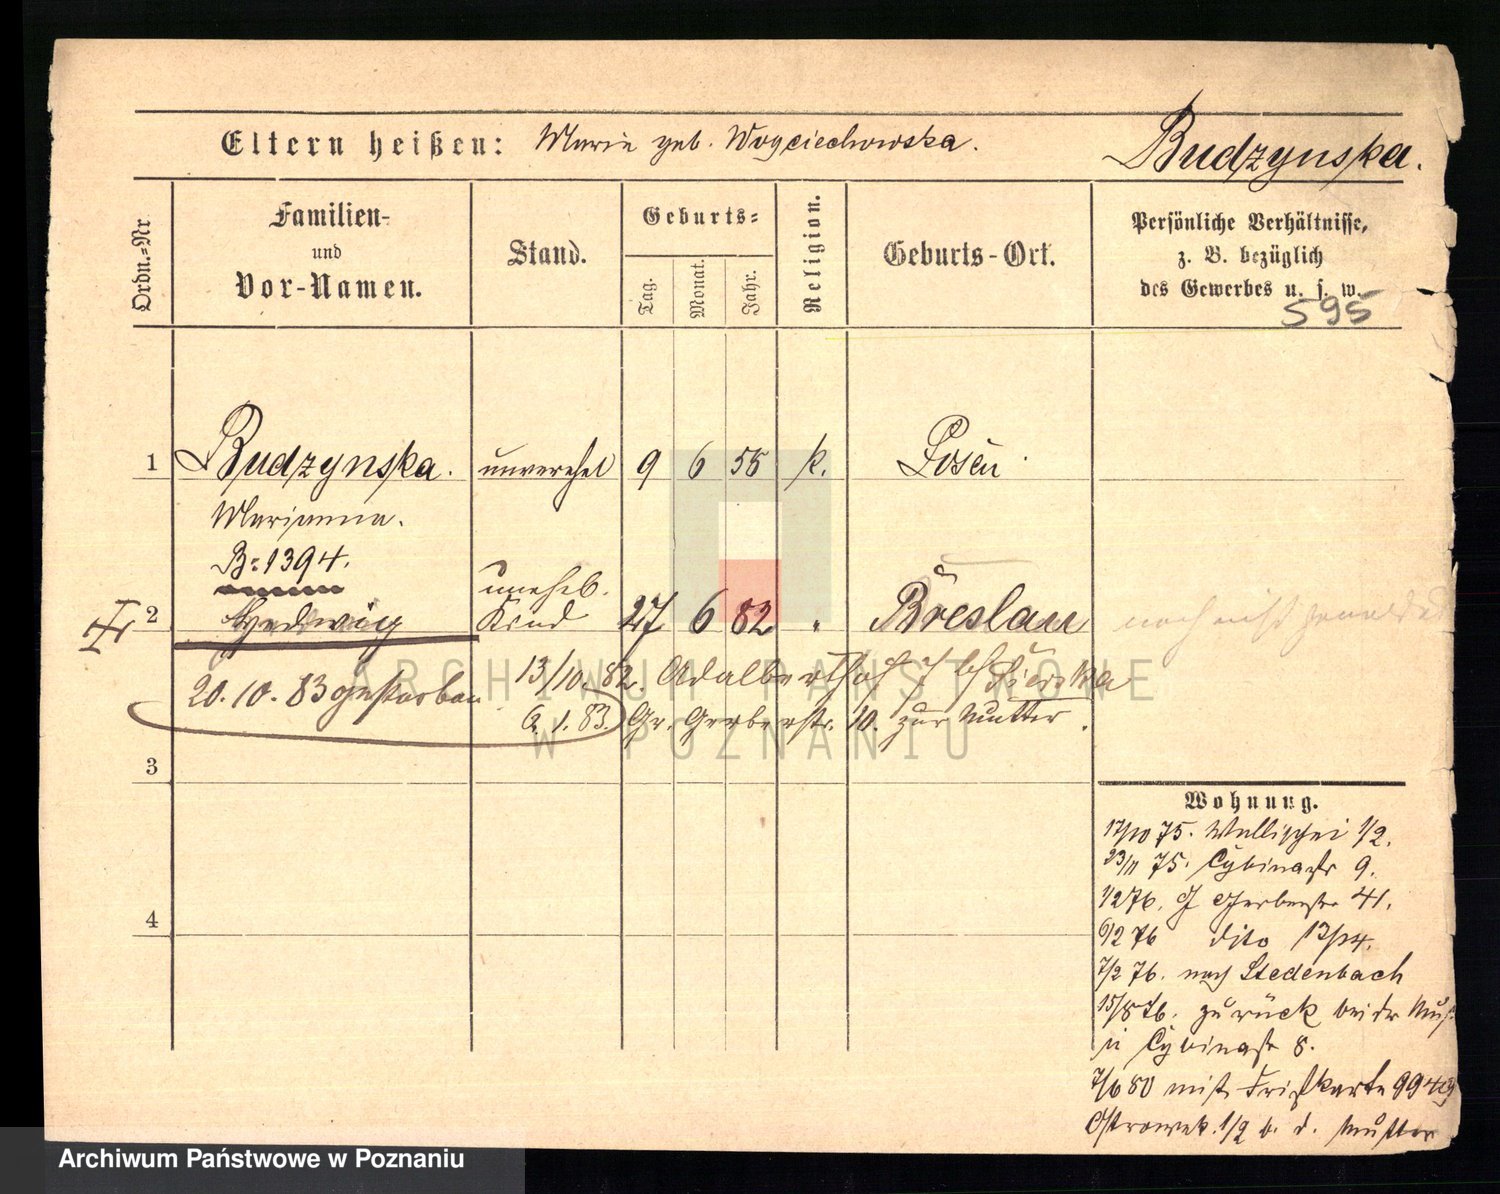 Eltern heißen: Marie geb. Woyciechowska.
Budzynska.
Ordn.-Nr
Familien-
und
Vor-Namen.
Stand.
Geburts-
Tag.
Monat.
Jahr.
Religion.
Geburts-Ort.
Persönliche Verhältnisse,
z. B. bezüglich
des Gewerbes u. s. w.
595
1 Budzynska. unverehel 9 6 55 k. Posen
Marianna.
B: 1394.
unehel.
2 Hedwig Kind 27 6 82 " Breslau noch nicht gemeldet
20.10.83 gestorben
13/10. 82. Adalbert
6.1.83. Gr. Gerberstr. 10. zur Mutter.
3
4
Wohnung.
17/10 75. Wallischei 1/2.
23/11 75. Cybinastr 9.
1/2 76. Gerberstr 41.
6/2 76 dito 13/14.
7/2 76. nach
15/8 76. zurück bei der
Cybinastr 8.
7/6 80 mit
Ostrowek. 1/2 b. d. Mutter
ARCHIWUM PAŃSTWOWE
W POZNANIU
Archiwum Państwowe w Poznaniu